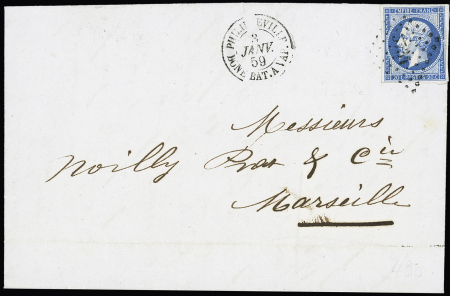 EMPIRE FRANC.
PHILIPPEVILLE
3
JANV.
59
BONE BAT. A VAP.
Messieurs
Noilly Prat & Cie
Marseille